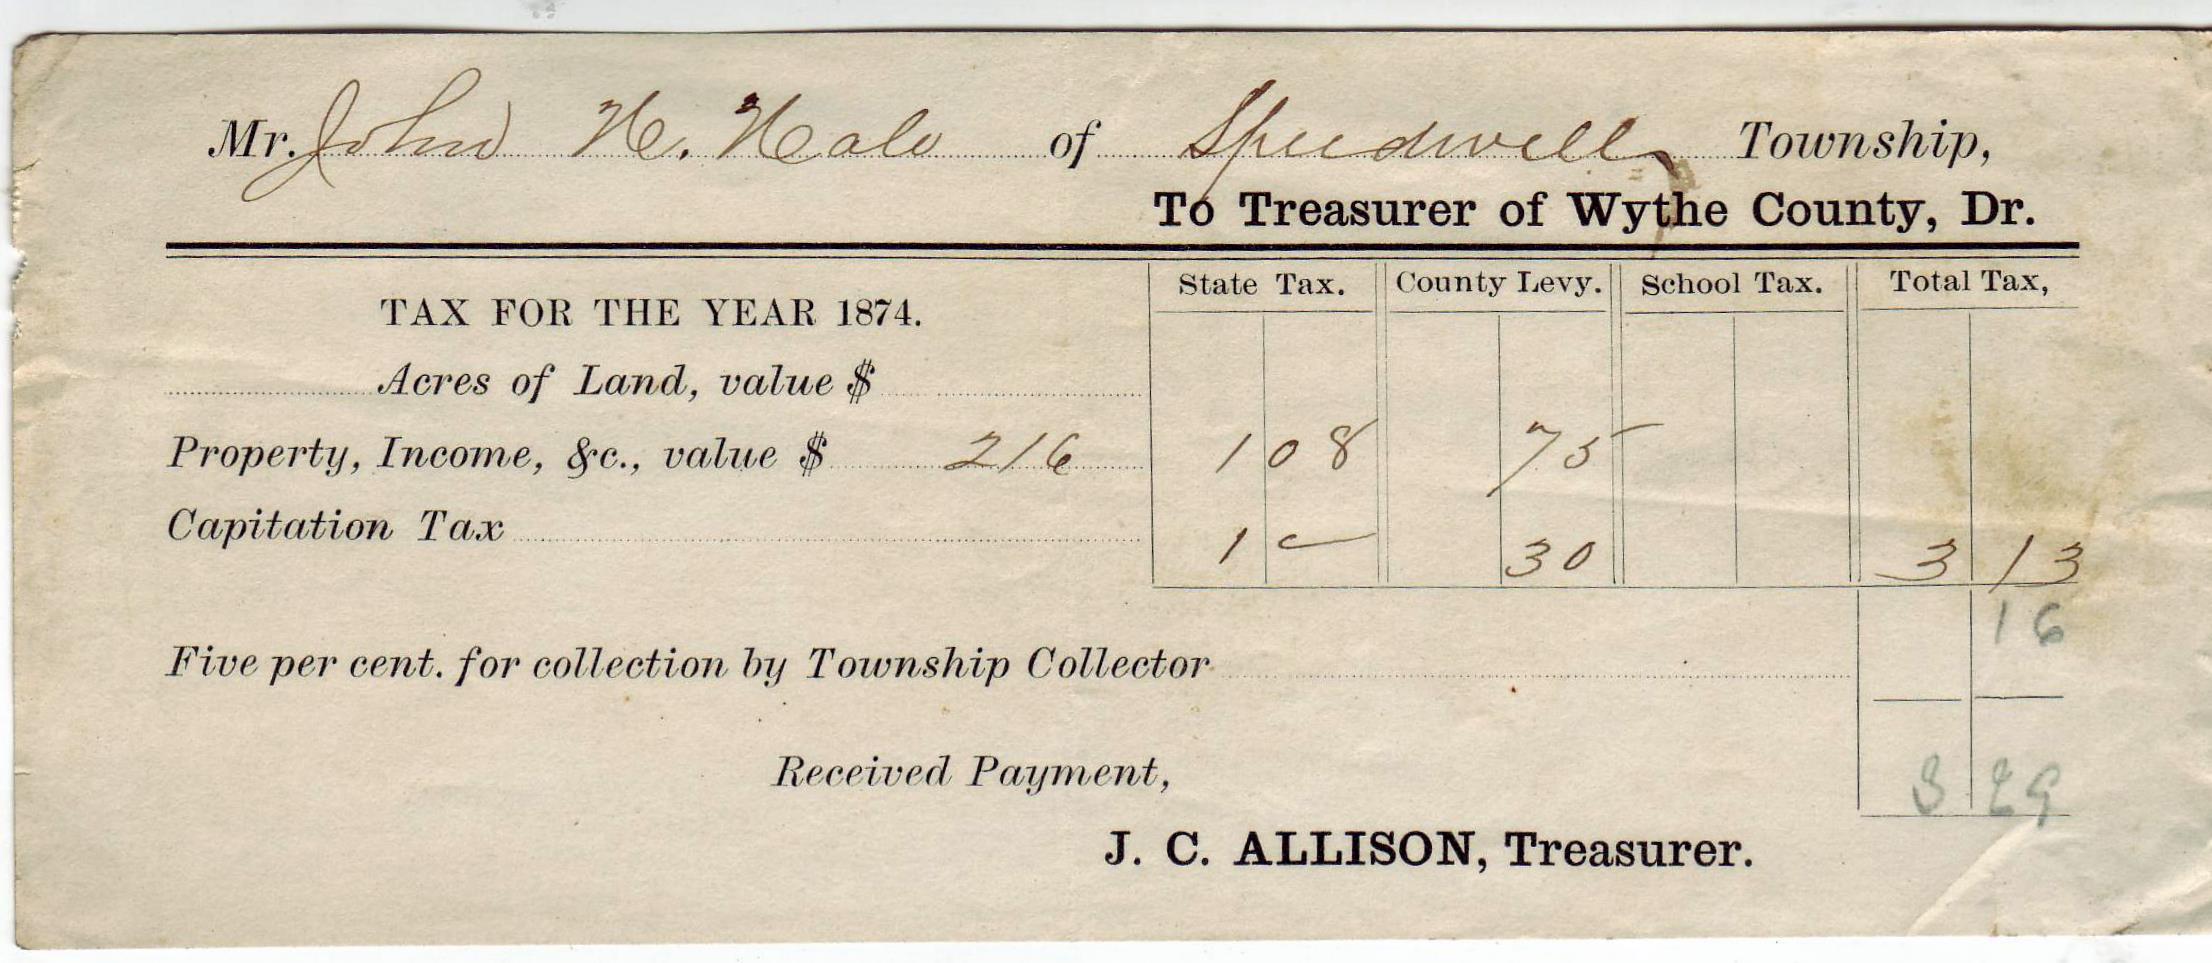 Mr. John H. Hale of Speedwell Township,
To Treasurer of Wythe County, Dr.
State Tax. County Levy. School Tax. Total Tax,
TAX FOR THE YEAR 1874.
Acres of Land, value $
Property, Income, &c., value $ 216 1 08 75
Capitation Tax 1 — 30 3 13
16
Five per cent. for collection by Township Collector
Received Payment, 3 29
J. C. ALLISON, Treasurer.